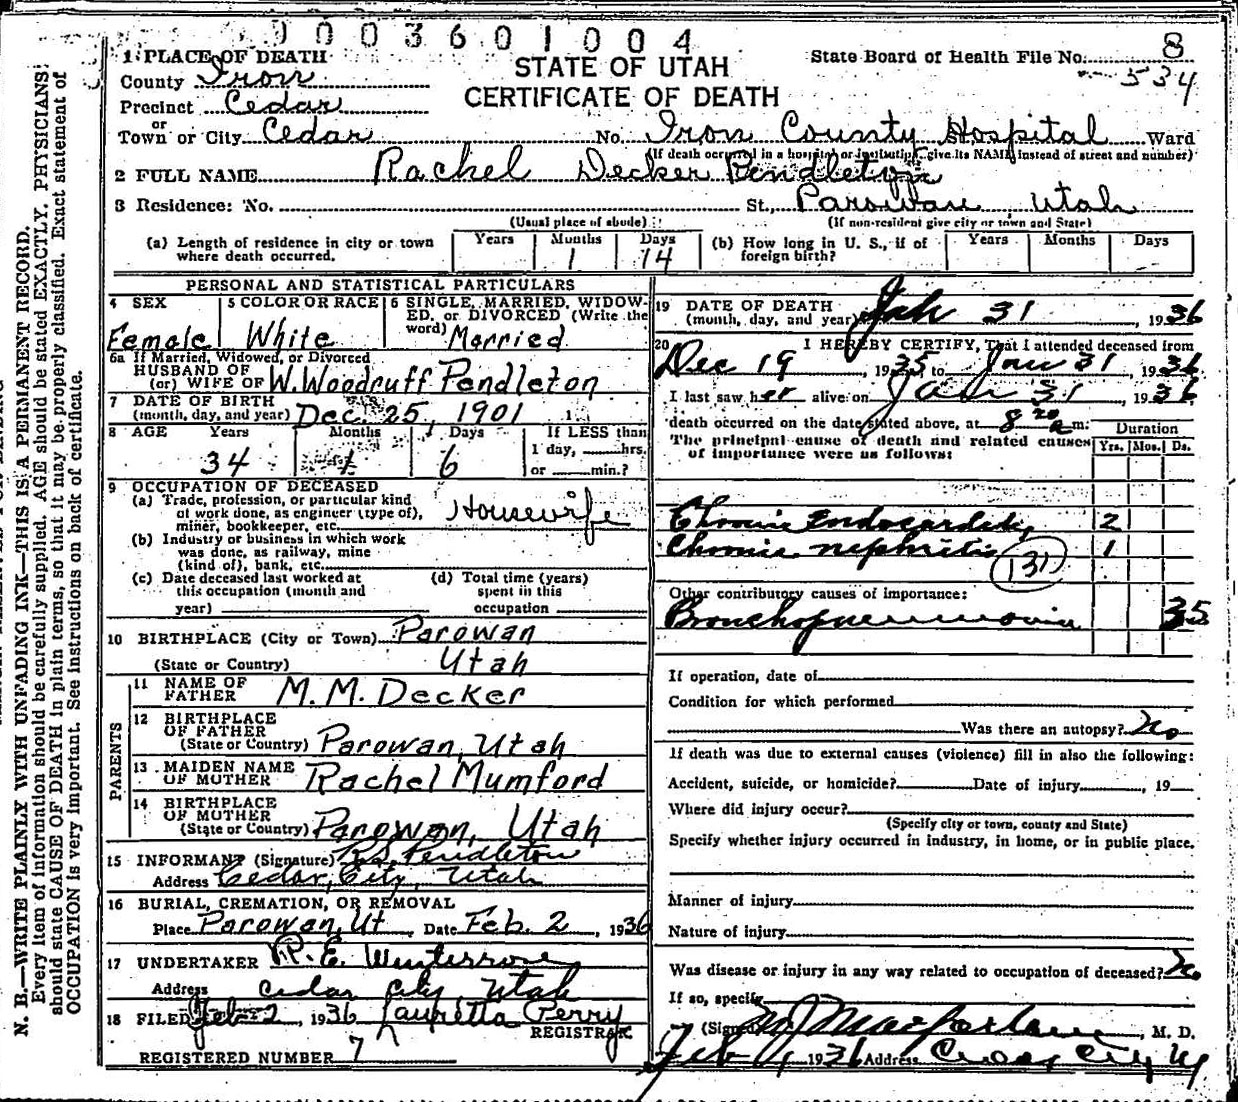 1003601004
1 PLACE OF DEATH
STATE OF UTAH
CERTIFICATE OF DEATH
State Board of Health File No. 8
534
County Iron
Precinct Cedar
or
Town or City Cedar No. Iron County Hospital St., Ward
(If death occurred in a hospital or institution, give its NAME instead of street and number)
2 FULL NAME Rachel Decker Pendleton
3 Residence: No. St., Parowan, Utah
(Usual place of abode) (If non-resident give city or town and State)
(a) Length of residence in city or town where death occurred. Years Months 1 Days 14 (b) How long in U. S., if of foreign birth? Years Months Days
PERSONAL AND STATISTICAL PARTICULARS
4 SEX Female
5 COLOR OR RACE White
6 SINGLE, MARRIED, WIDOWED, or DIVORCED (Write the word) Married
6a If Married, Widowed, or Divorced
HUSBAND OF
(or) WIFE OF W. Woodruff Pendleton
7 DATE OF BIRTH
(month, day, and year) Dec. 25, 1901
8 AGE Years 34 Months 1 Days 6 If LESS than 1 day, hrs. or min.?
9 OCCUPATION OF DECEASED
(a) Trade, profession, or particular kind of work done, as engineer (type of), miner, bookkeeper, etc. Housewife
(b) Industry or business in which work was done, as railway, mine (kind of), bank, etc.
(c) Date deceased last worked at this occupation (month and year)
(d) Total time (years) spent in this occupation
10 BIRTHPLACE (City or Town) Parowan
(State or Country) Utah
PARENTS
11 NAME OF FATHER M. M. Decker
12 BIRTHPLACE OF FATHER
(State or Country) Parowan, Utah
13 MAIDEN NAME OF MOTHER Rachel Mumford
14 BIRTHPLACE OF MOTHER
(State or Country) Parowan, Utah
15 INFORMANT (Signature) R.S. Pendleton
Address Cedar City, Utah
16 BURIAL, CREMATION, OR REMOVAL
Place Parowan, Ut Date Feb. 2, 1936
17 UNDERTAKER E. Winterrose
Address Cedar City Utah
18 FILED Feb 2, 1936 Lauretta Perry
REGISTRAR
REGISTERED NUMBER 7
19 DATE OF DEATH
(month, day, and year) Jan 31, 1936
20 I HEREBY CERTIFY, That I attended deceased from
Dec 19, 1935 to Jan 31, 1936
I last saw her alive on Jan 31, 1936
death occurred on the date stated above, at 8 20 a m.
The principal cause of death and related causes of importance were as follows:
Duration
Yrs. Mos. Ds.
Chronic Endocarditis, 2
Chronic nephritis 1
131
Other contributory causes of importance:
Bronchopneumonia 35
If operation, date of
Condition for which performed
Was there an autopsy? No
If death was due to external causes (violence) fill in also the following:
Accident, suicide, or homicide? Date of injury , 19
Where did injury occur?
(Specify city or town, county and State)
Specify whether injury occurred in industry, in home, or in public place.
Manner of injury
Nature of injury
Was disease or injury in any way related to occupation of deceased? No
If so, specify
(Signed) Macfarlane, M. D.
Feb 1, 1936 Address Cedar City Ut
N. B.—WRITE PLAINLY WITH UNFADING INK—THIS IS A PERMANENT RECORD.
Every item of information should be carefully supplied. AGE should be stated EXACTLY. PHYSICIANS
should state CAUSE OF DEATH in plain terms, so that it may be properly classified. Exact statement of
OCCUPATION is very important. See instructions on back of certificate.